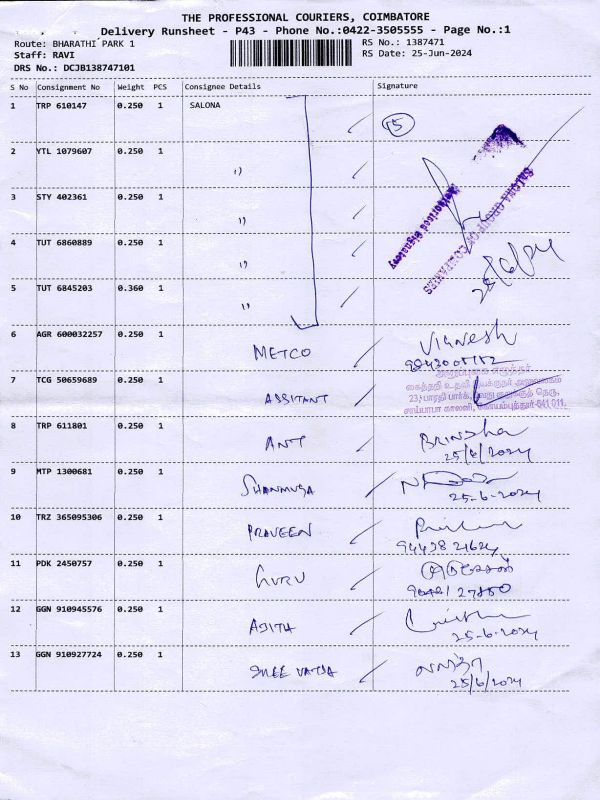 THE PROFESSIONAL COURIERS, COIMBATORE
Delivery Runsheet - P43 - Phone No.:0422-3505555 - Page No.:1
Route: BHARATHI PARK 1 RS No.: 1387471
Staff: RAVI RS Date: 25-Jun-2024
DRS No.: DCJB138747101
S No Consignment No Weight PCS Consignee Details Signature
1 TRP 610147 0.250 1 SALONA 15
2 YTL 1079607 0.250 1 "
3 STY 402361 0.250 1 "
Authorised Signatory
4 TUT 6860889 0.250 1 "
5 TUT 6845203 0.360 1 "
6 AGR 600032257 0.250 1 METCO Vignesh
7 TCG 50659689 0.250 1 ASSITANT
கைத்தறி உதவி இயக்குநர் அலுவலகம்
8 TRP 611801 0.250 1 ANT Brindha
25/6/2024
9 MTP 1300681 0.250 1 SHANMUGA
25-6-2024
10 TRZ 365095306 0.250 1 PRAVEEN
94438 21624
11 PDK 2450757 0.250 1 GURU
12 GGN 910945576 0.250 1 AJITH
25-6-2024
13 GGN 910927724 0.250 1 SHREE VATSA
25/6/2024